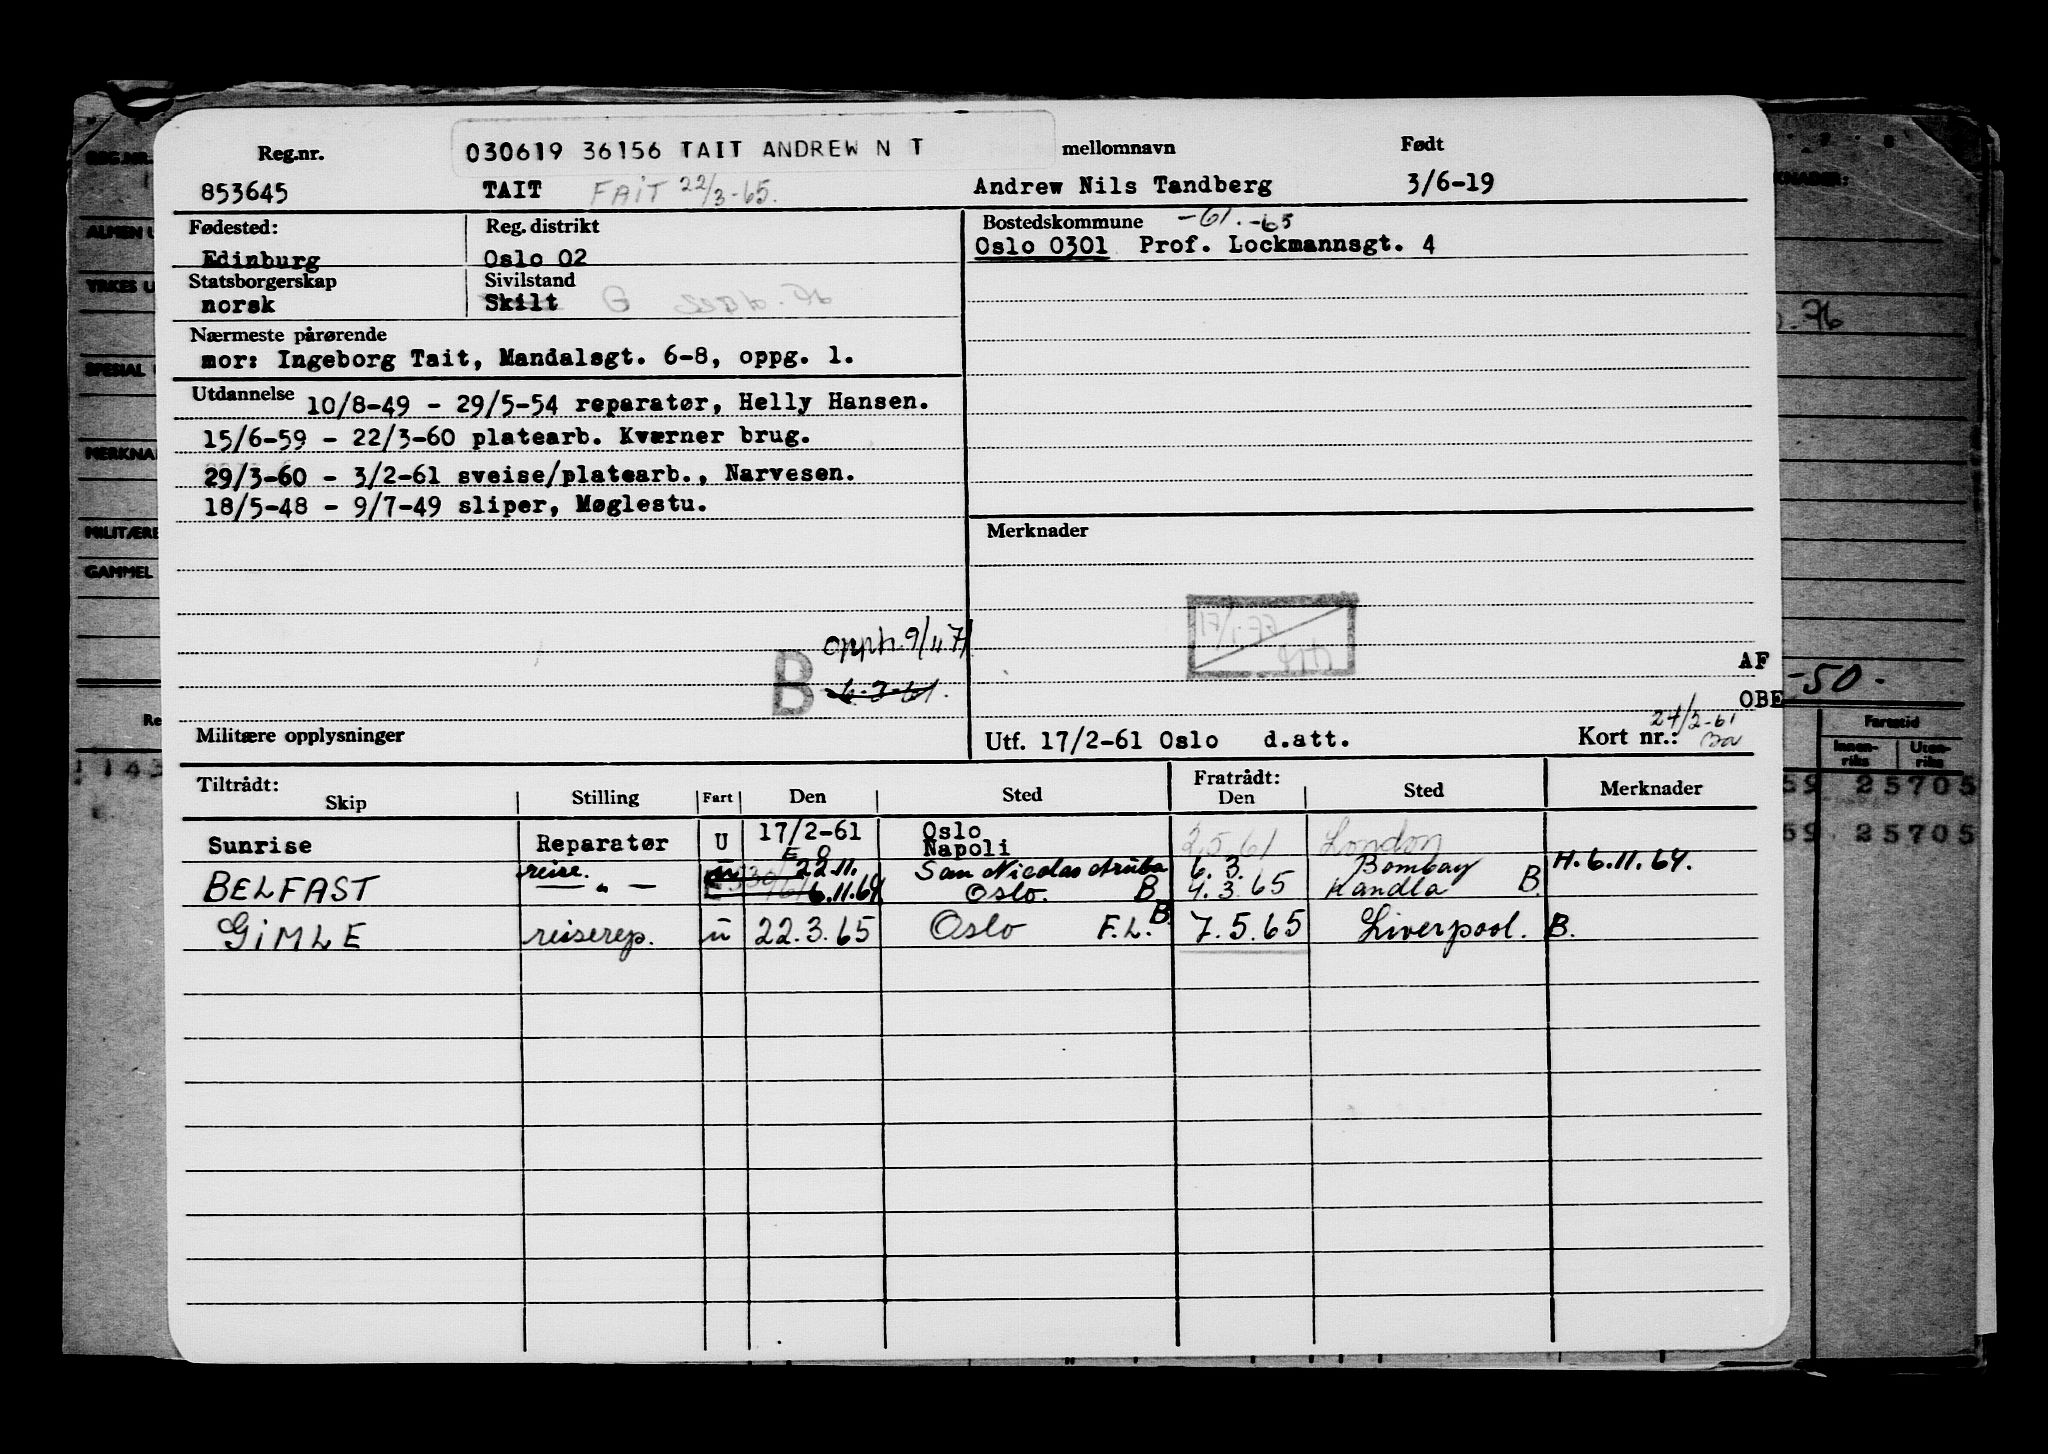 Reg.nr. 030619 36156 TAIT ANDREW N T mellomnavn Født
853645 TAIT FAIT 22/3-65. Andrew Nils Tandberg 3/6-19
Fødested: Reg. distrikt Bostedskommune -61. -65
Edinburg Oslo 02 Oslo 0301 Prof. Lockmannsgt. 4
Statsborgerskap Sivilstand
norsk Skilt G
Nærmeste pårørende
mor: Ingeborg Tait, Mandalsgt. 6-8, oppg. 1.
Utdannelse 10/8-49 - 29/5-54 reparatør, Helly Hansen.
15/6-59 - 22/3-60 platearb. Kværner brug.
29/3-60 - 3/2-61 sveise/platearb., Narvesen.
18/5-48 - 9/7-49 sliper, Møglestu.
Merknader
opph. 9/11 71
B 6-3-61.
AF
OBE
-50.
Militære opplysninger Utf. 17/2-61 Oslo d.att. Kort nr.: 24/2-61
Tiltrådt: Fratrådt:
Skip Stilling Fart Den Sted Den Sted Merknader
Sunrise Reparatør U 17/2-61 Oslo 2.5.61 London
E O Napoli
reise. 22.11. San Nicolas Aruba 6.3. Bombay H. 6.11.64.
BELFAST — " — 6.11.64 Oslo. B 4.3.65 Kandla B.
GIMLE reiserep. u 22.3.65 Oslo F.L. B. 7.5.65 Liverpool. B.
REG.NR.
ALMEN U
YRKES U
SPESIAL
MERKNA
MILITÆRE
GAMMEL
KNADER:
. 76
Fartstid
Innen-riks Uten-riks
59 25705
59 25705